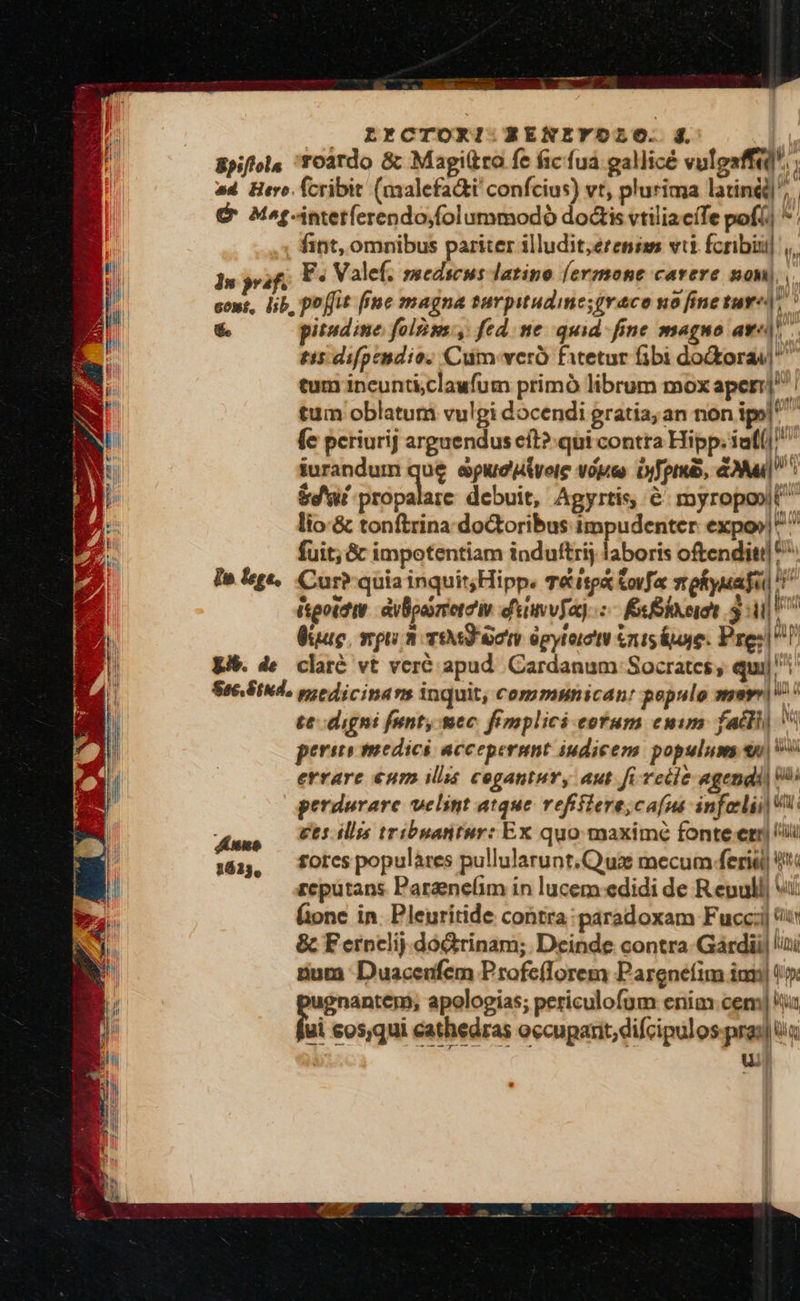 LECTORI BENEVOLO. 4.
Epistola roardo & Magistro se sic sua gallicé vulgasse
ad Hero. scribit (malefacti conscius) vt, plurima latiné
& Mag. interserendo, solummodò doctis vtilia esse pos
sint, omnibus pariter illudit, etenim vti scribit
In præf. F. Vales. medicus latino sermone carere non
cont. lib. possit sine magna turpitudine; græco nō sine tur
&c pitudine solùm, sed ne quid sine magno
tis dispendio. Cum verò fatetur sibi doctora
tum ineunti, clausum primò librum mox aper
tum oblatum vulgi docendi gratia, an non
se periurij arguendus est? qui contra Hipp.
iurandum que ὡρκισμένοις νόμῳ ἰητρικῷ,
propalare debuit, Agyrtis, è myropo
lio & tonstrina doctoribus impudenter expo
suit; & impotentiam industrij laboris ostendit
In lege. Cur? quia inquit, Hipp. τὰ ἱερὰ ἐόντα πρήγματα
ἱεροῖσιν ἀνθρώποισιν δείκνυται: βεβήλοισι δὲ οὐ
θέμις, πρὶν ἢ τελεσθῶσιν ὀργίοισιν ἐπιστήμης.
Lib. de claré vt veré apud Cardanum Socrates,
Sec. Stud. medicinam inquit, communicant populo
te digni sunt, nec simplici eorum enim
peritis medici acceperunt iudicem populum
errare cum illis cogantur, aut si recte agendi
perdurare velint atque resistere, casus infœli
ces illis tribuantur: Ex quo maximé fonte er
Anno rores populares pullularunt. Quæ mecum
1623, reputans Parænesim in lucem edidi de Reuul
sione in Pleuritide contra paradoxam
& Fernelij doctrinam; Deinde contra
rium Duacensem Professorem Parænesim
pugnantem, apologias; periculosum enim
sui eos, qui cathedras occupant, discipulos